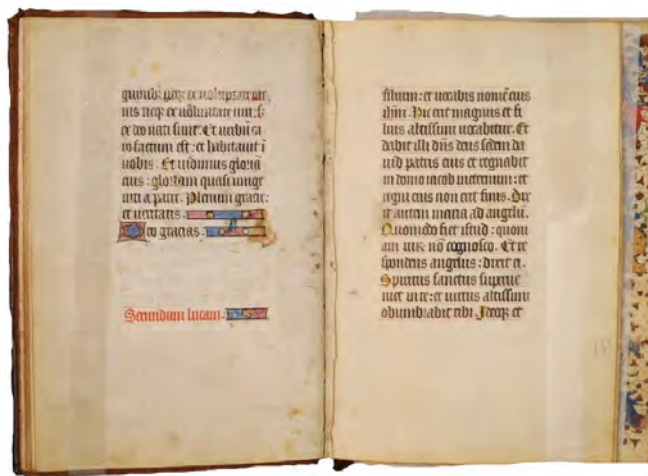 guinibꝫ neqꝫ ex uoluptate car
nis neqꝫ ex uoluntate uiri: sꝫ
ex deo nati sunt. Et uerbū ca
ro factum est: et habitauit ī
nobis. Et uidimus gloriā
eius: gloriam quasi unige
niti a patre. Plenum gracie:
et ueritatis.
Deo gracias.
Secundum lucam.
filium: et uocabis nomē eius
ihm̄. Hic erit magnus et fi
lius altissimi uocabitur. Et
dabit illi dn̄s deus sedem da
uid patris eius et regnabit
in domo iacob ineternum: et
regni eius non erit finis. Dix
it autem maria ad angelū.
Quomodo fiet istud: quoni
am uirū nō cognosco. Et re
spondens angelus: dixit ei.
Spiritus sanctus superue
niet in te: et uirtus altissimi
obumbrabit tibi. Ideoqꝫ et